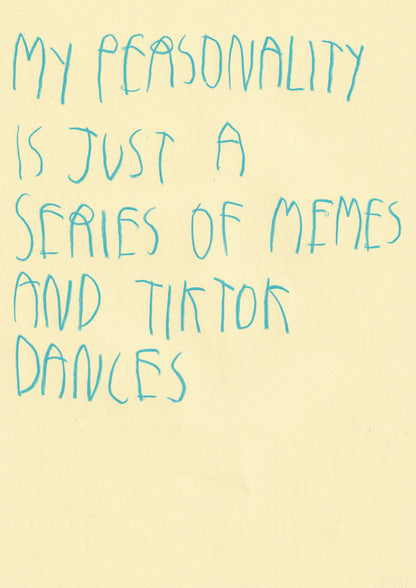 MY PERSONALITY
IS JUST A
SERIES OF MEMES
AND TIKTOK
DANCES